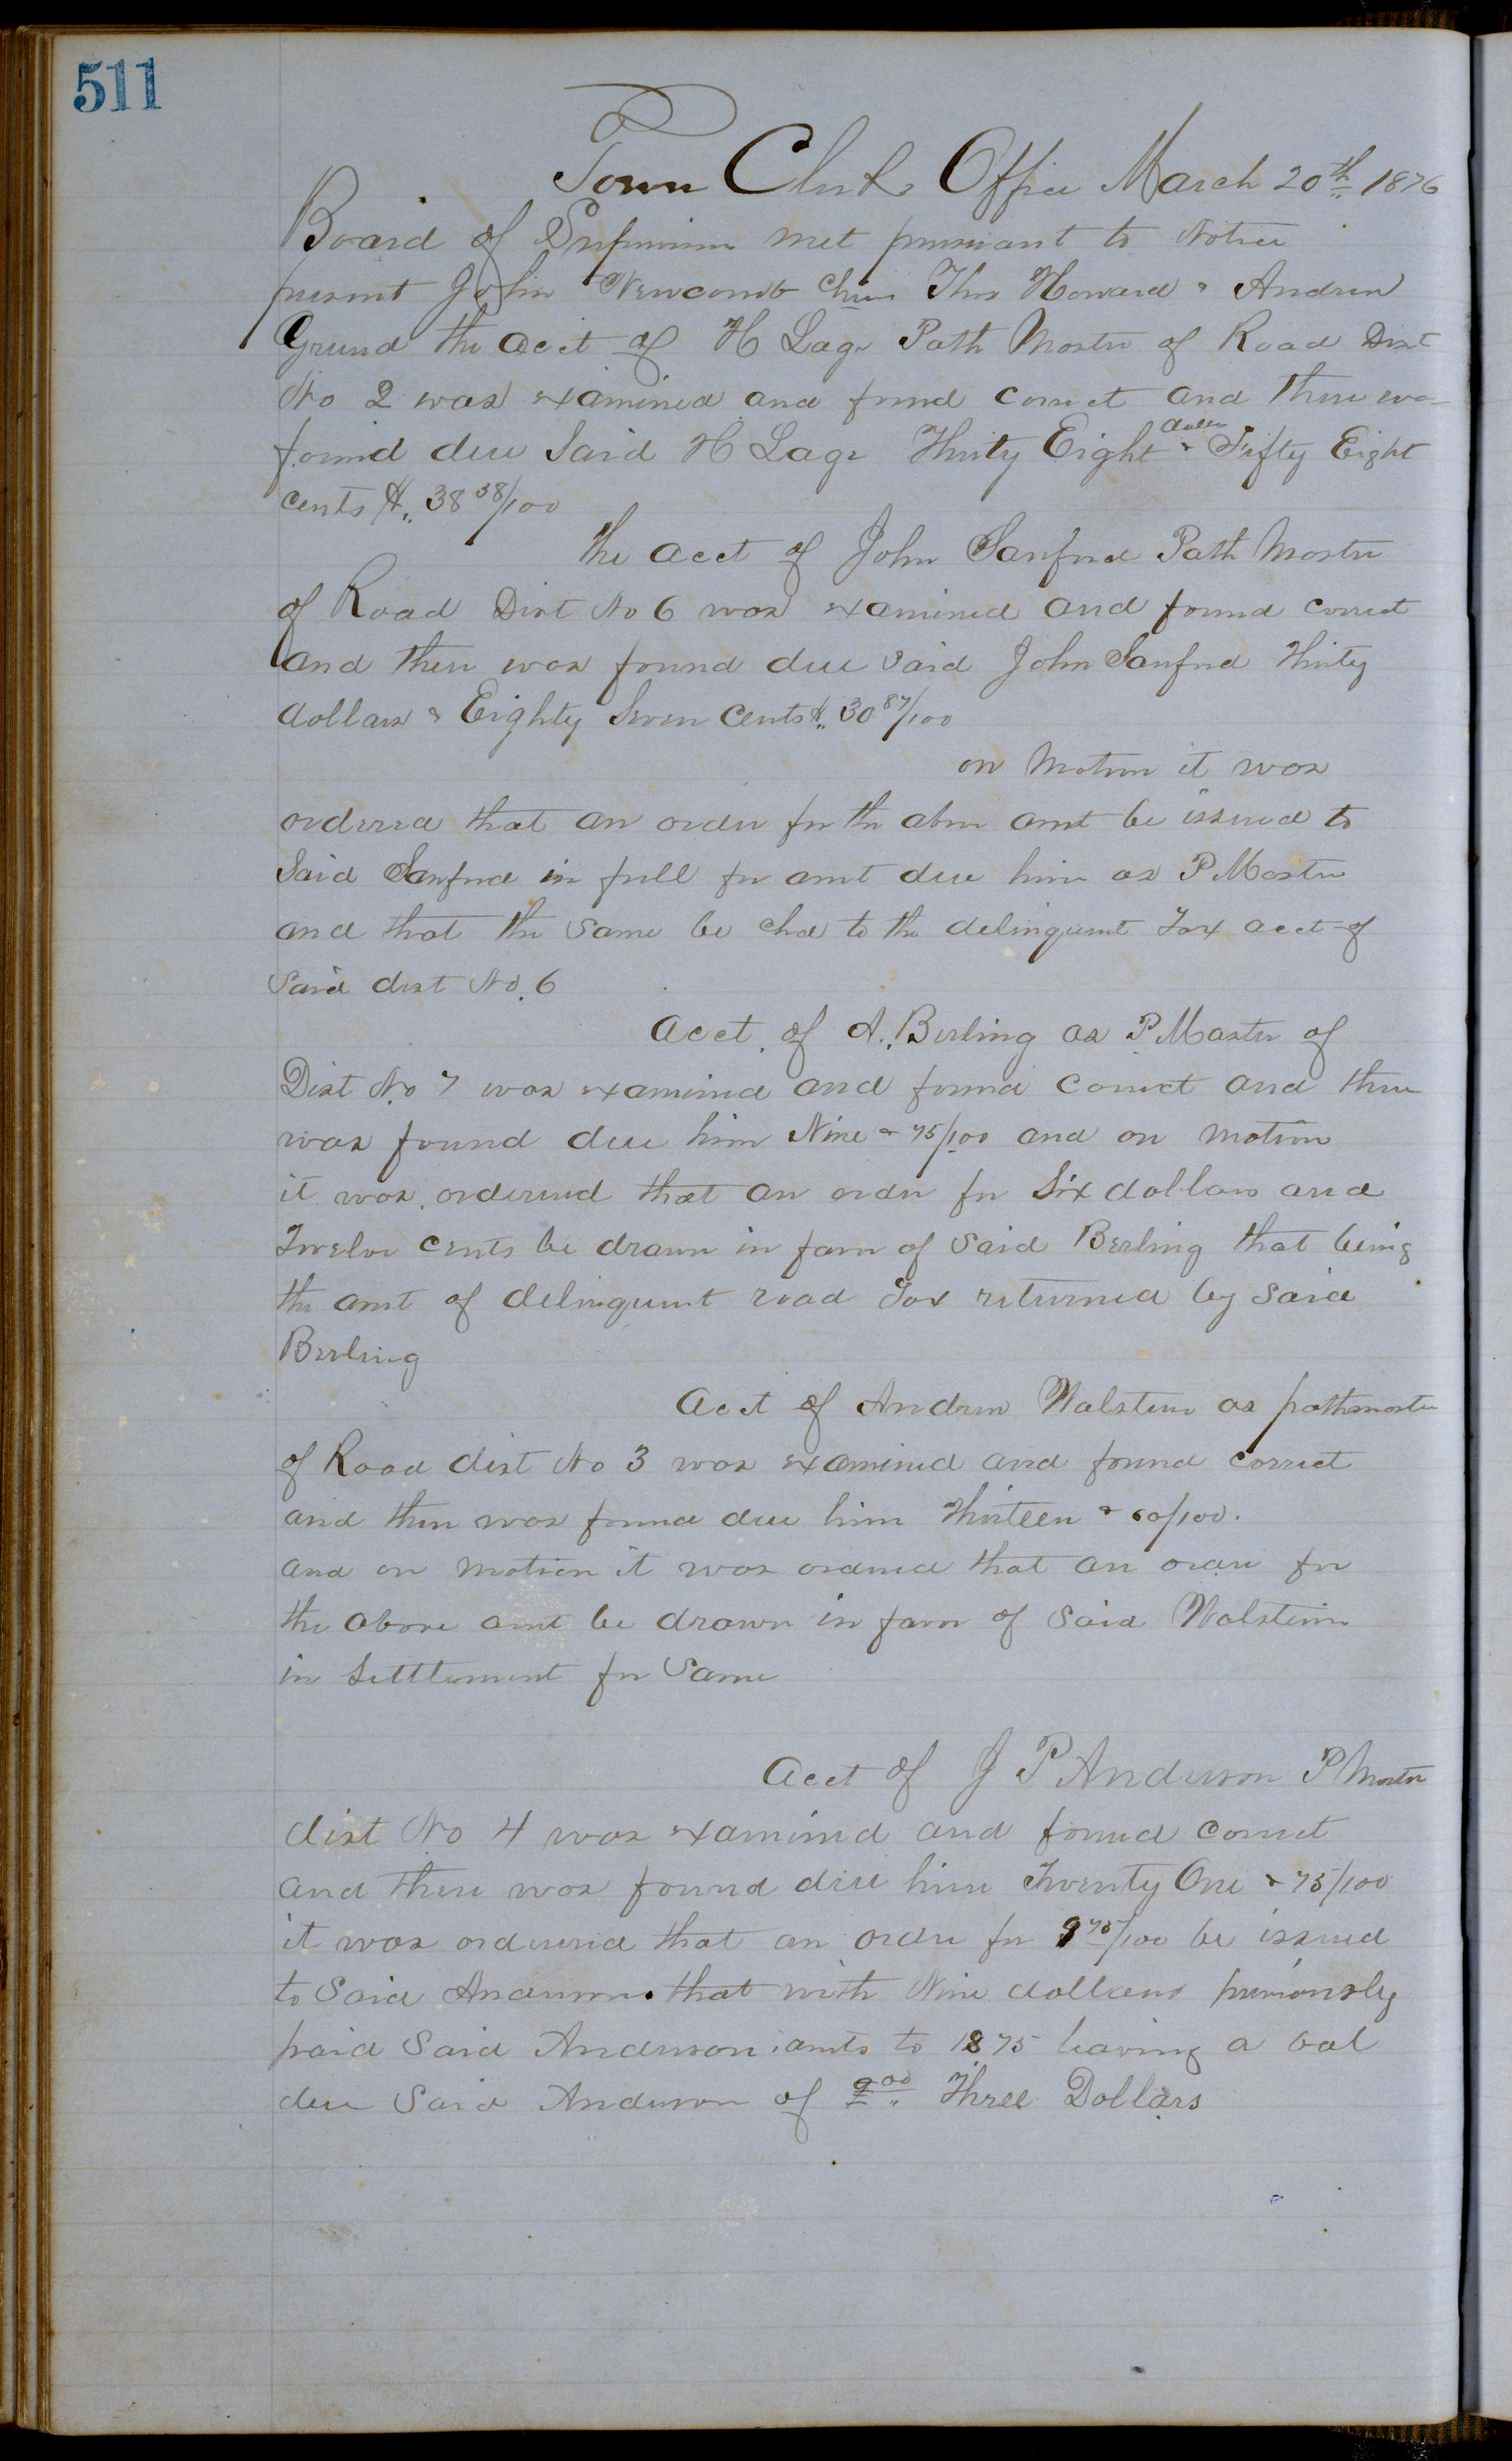 511
Town Clerk Office March 20th 1876
Board of Supervisors met pursuant to Notice
present John Newcomb Chm Thos Howard & Andrew
Grund the acct of H Lage Path Master of Road Dist
No 2 was examined and found correct and there was
found due Said H Lage Thirty Eight dollars & Fifty Eight
cents $38 58/100
the acct of John Sanford Path Master
of Road Dist No 6 was examined and found correct
and there was found due said John Sanford Thirty
dollars & Eighty Seven Cents $30 87/100
on Motion it was
ordered that an order for the above amt be issued to
Said Sanford in full for amt due him as P Master
and that the same be chd to the delinquent Tax acct of
Said dist No. 6
Acct of A. Berling as P Master of
Dist No 7 was examined and found correct and there
was found due him Nine & 75/100 and on motion
it was ordered that an order for Six dollars and
Twelve cents be drawn in favor of Said Berling that being
the amt of delinquent road Tax returned by Said
Berling
Acct of Andrew Walstein as pathmaster
of Road dist No 3 was examined and found correct
and there was found due him Thirteen & 60/100.
and on motion it was ordered that an order for
the above amt be drawn in favor of Said Walstein
in Settlement for Same
Acct of J P Anderson P Master
dist No 4 was examined and found correct
and there was found due him Twenty One & 75/100
it was ordered that an order for 9 75/100 be issued
to Said Anderson. that with Nine dollars previously
paid Said Anderson amts to 18 75 leaving a bal
due Said Anderson of Three Dollars